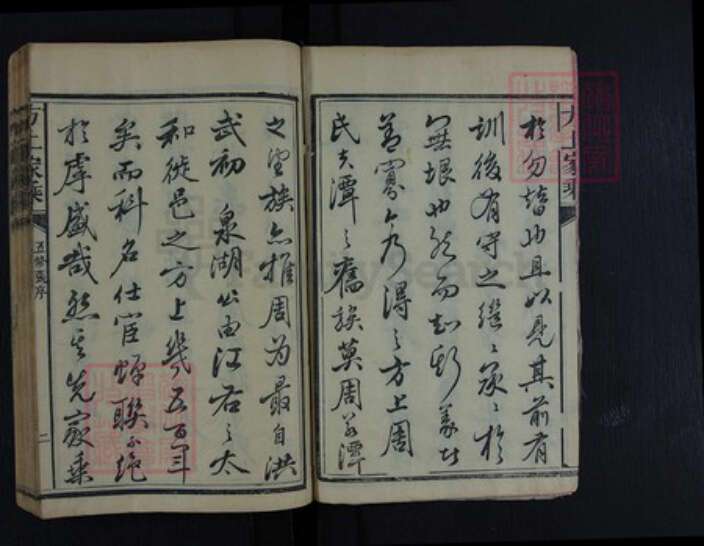 於勿替也且以見其前有
訓後有守之繼繼承承於
無垠也然而知斯義者
蓋寡今乃得之方上周
氏夫潭之舊族莫周若潭
之望族亦惟周為最自洪
武初泉湖公由江右之太
和徙邑之方上幾五百年
矣而科名仕宦蟬聯不絕
於虖盛哉然其先家乘
方上家乘
五修 序
二